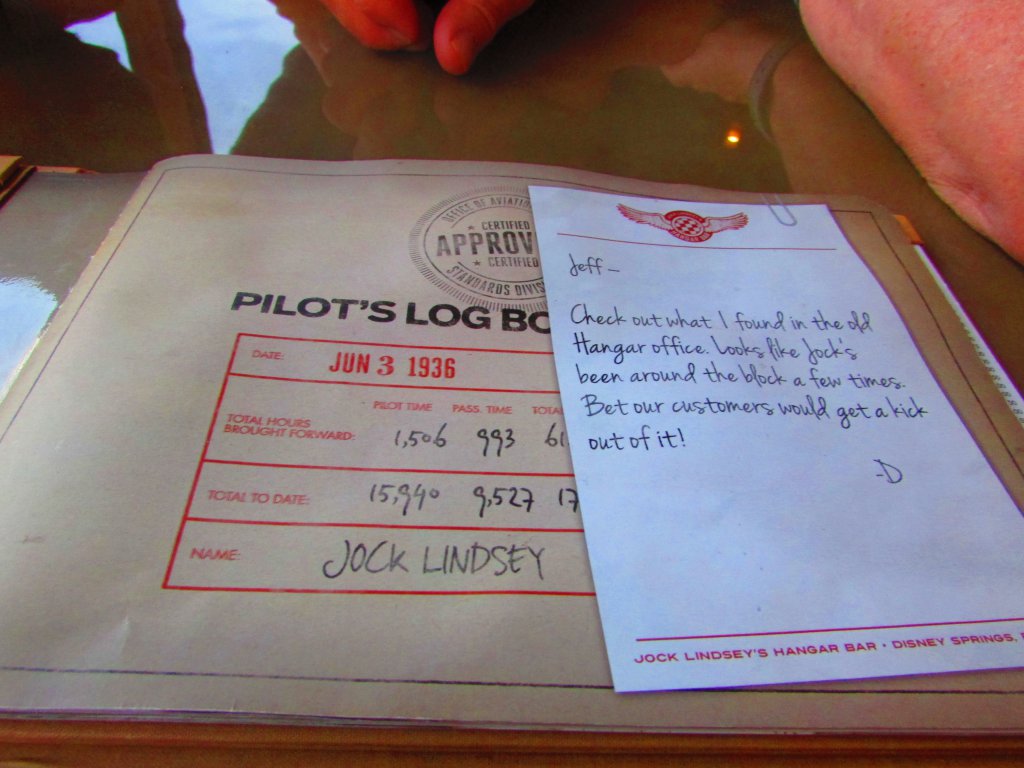 OFFICE OF AVIATION
CERTIFIED
APPROV
CERTIFIED
STANDARDS DIVIS
PILOT'S LOG BO
DATE: JUN 3 1936
PILOT TIME PASS. TIME TOTA
TOTAL HOURS
BROUGHT FORWARD: 1,506 993 61
TOTAL TO DATE: 15,940 9,527 17
NAME: JOCK LINDSEY
Jeff-
Check out what I found in the old
Hangar office. Looks like Jock's
been around the block a few times.
Bet our customers would get a kick
out of it!
-D
JOCK LINDSEY'S HANGAR BAR • DISNEY SPRINGS,